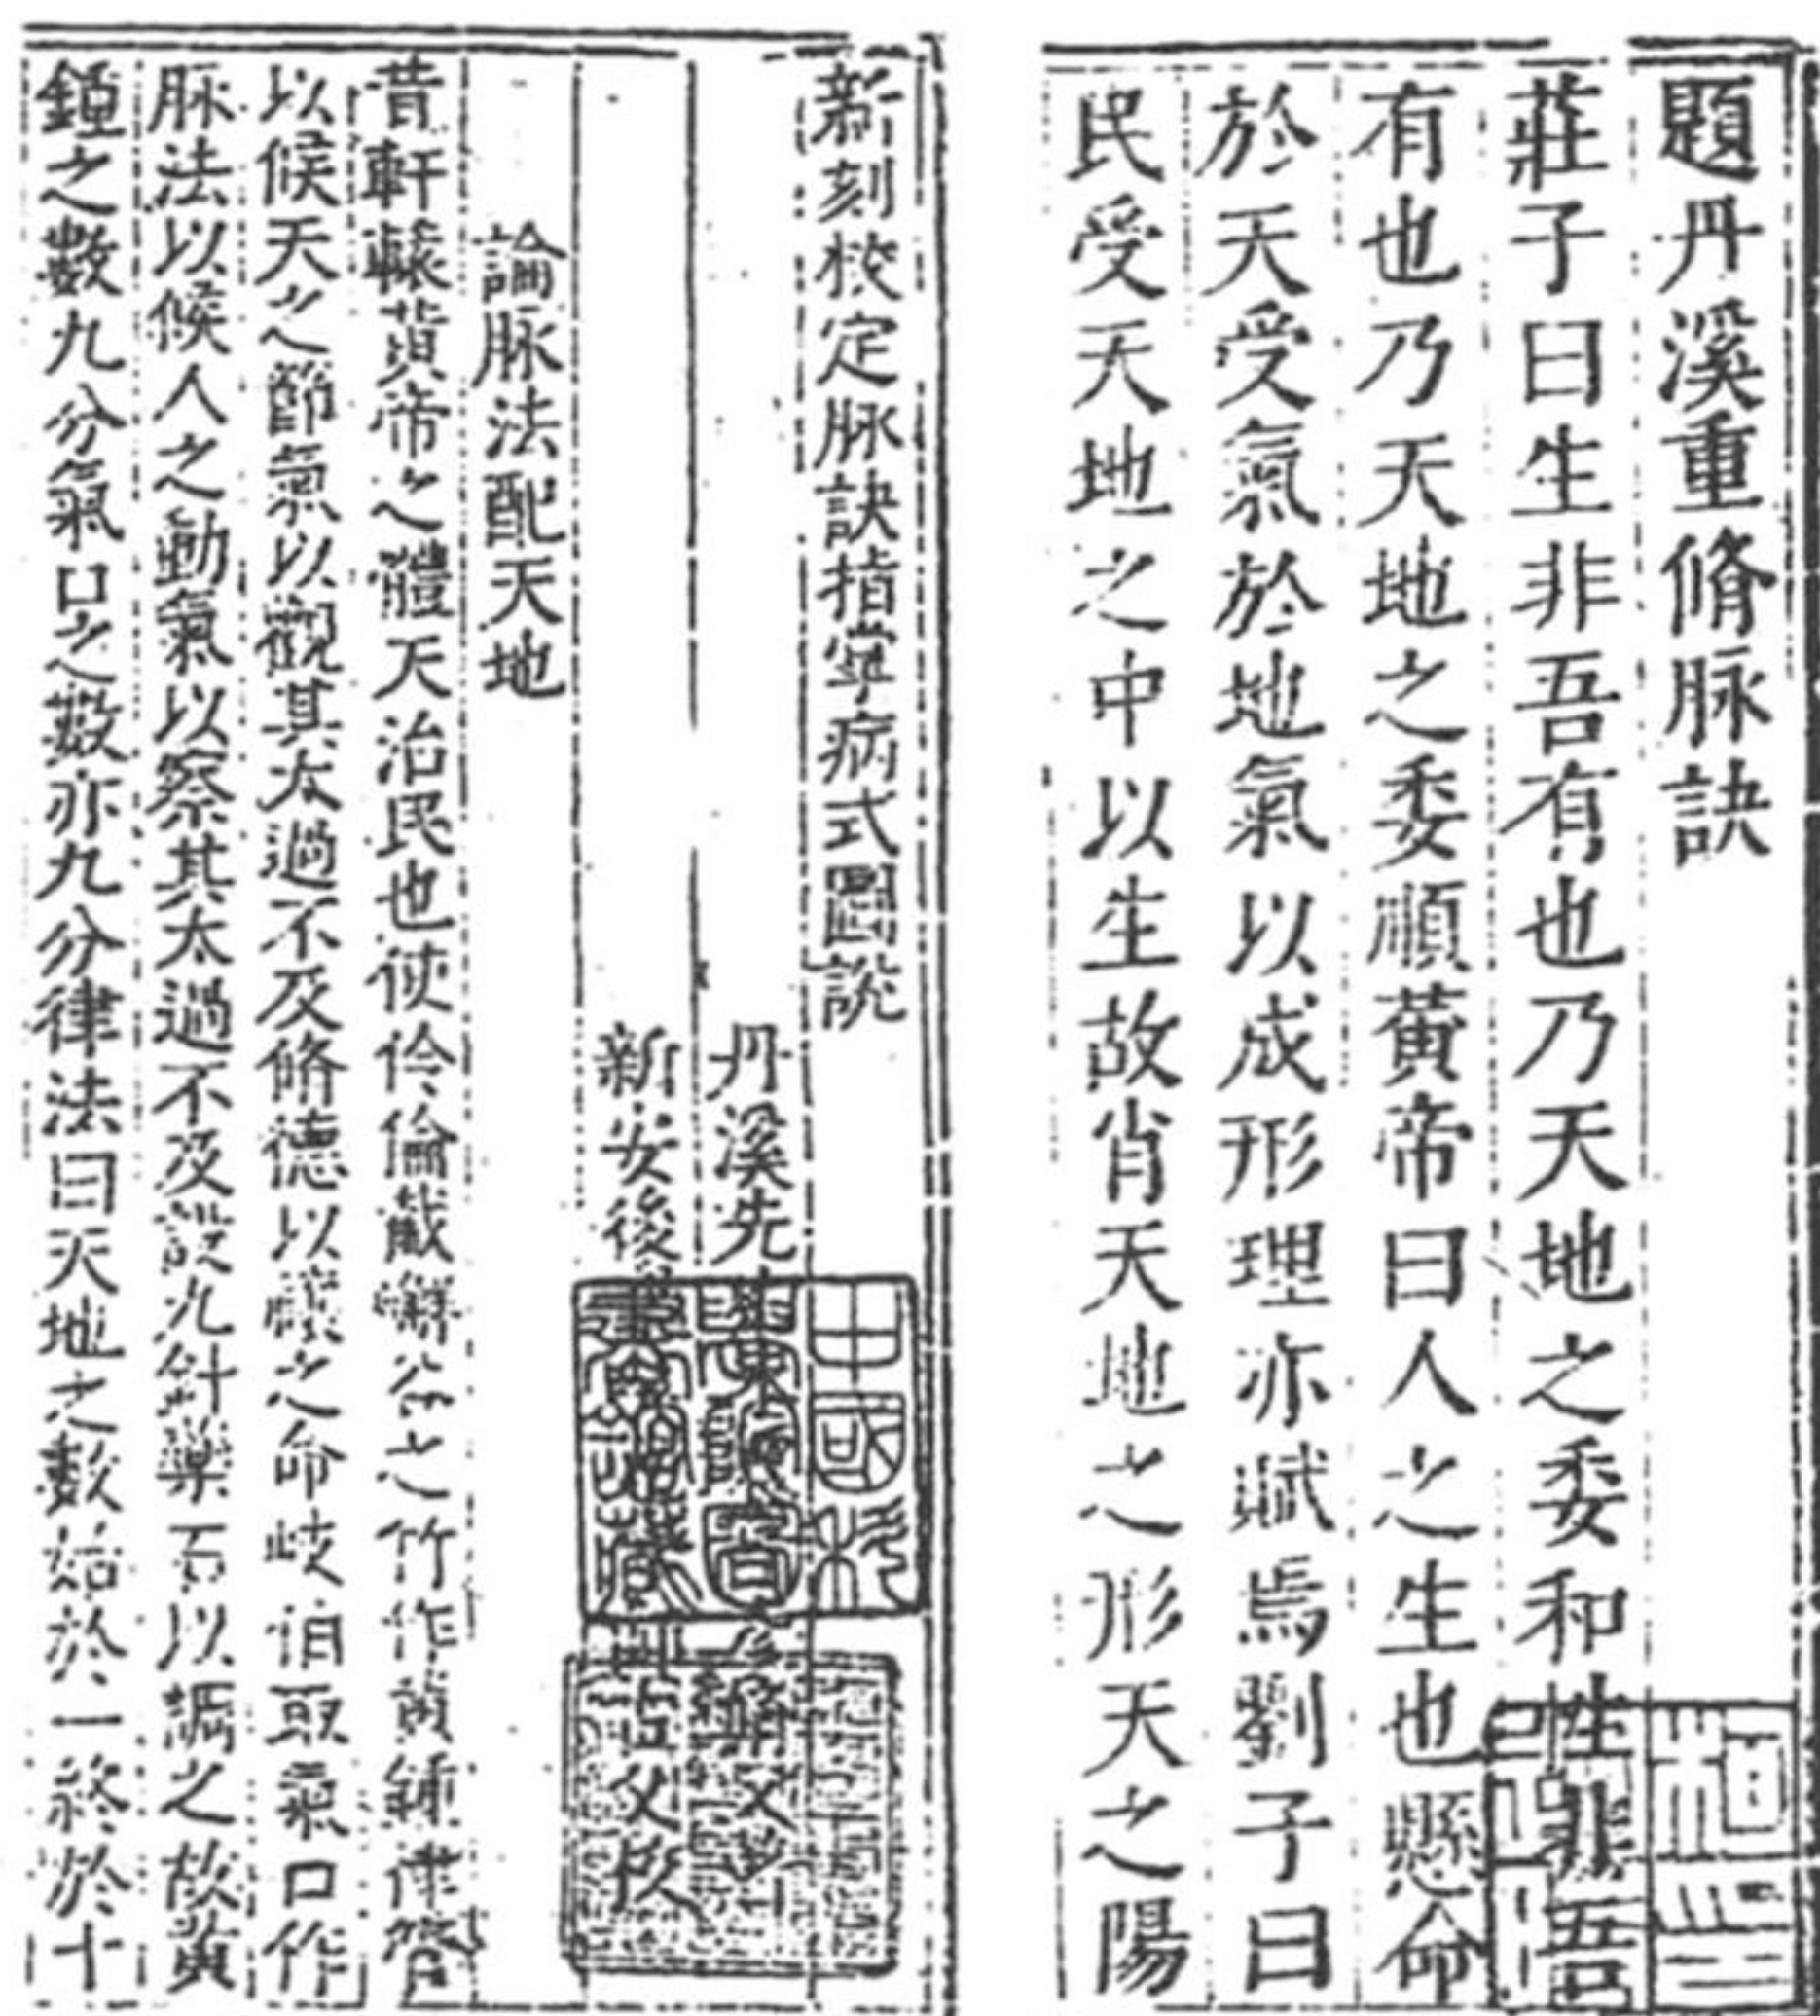 題丹溪重脩脉訣
莊子曰生非吾有也乃天地之委和性非吾
有也乃天地之委順黃帝曰人之生也懸命
於天受氣於地氣以成形理亦賦焉劉子曰
民受天地之中以生故肖天地之形天之陽
新刻校定脉訣指掌病式圖説
丹溪先
新安後
論脉法配天地
昔軒轅黃帝之體天治民也使伶倫截嶰谷之竹作黃鍾律管
以候天之節氣以觀其太過不及脩德以禳之命岐伯取氣口作
脉法以候人之動氣以察其太過不及設九針藥石以調之故黃
鍾之數九分氣口之數亦九分律法曰天地之數始於一終於十
中國科